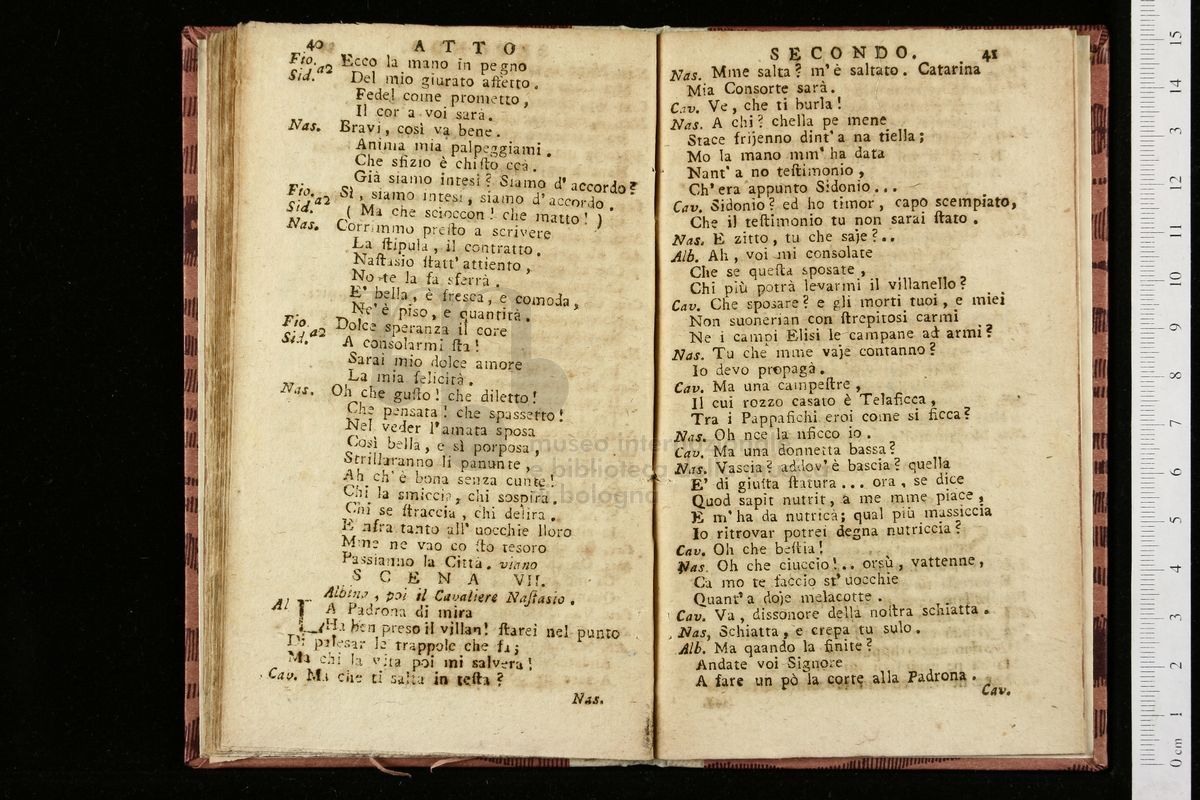 40 ATTO
Fio. Sid. a2 Ecco la mano in pegno
Del mio giurato affetto.
Fedel come prometto,
Il cor a voi sarà.
Nas. Bravi, così va bene.
Anima mia palpeggiami.
Che sfizio è chisto ccà.
Già siamo intesi? Siamo d'accordo?
Fio. Sid. a2 Sì, siamo intesi, siamo d'accordo.
( Ma che scioccon! che matto! )
Nas. Corrimmo presto a scrivere
La stipula, il contratto.
Nastasio statt'attiento,
No te la fa sferrà.
E' bella, è fresca, e comoda,
Nc'è piso, e quantità.
Fio. Sid. a2 Dolce speranza il core
A consolarmi sta!
Sarai mio dolce amore
La mia felicità.
Nas. Oh che gusto! che diletto!
Che pensata! che spassetto!
Nel veder l'amata sposa
Così bella, e sì porposa,
Strillaranno li panunte,
Ah ch'è bona senza cunte!
Chi la smiccia, chi sospira.
Chi se straccia, chi delira.
E nfra tanto all'uocchie lloro
Mme ne vao co sto tesoro
Passianno la Città. viano
SCENA VII.
Albina, poi il Cavaliere Nastasio.
Al LA Padrona di mira
Ha ben preso il villan! starei nel punto
Di palesar le trappole che fa;
Ma chi la vita poi mi salverà!
Cav. Ma che ti salta in testa?
Nas.
SECONDO. 41
Nas. Mme salta? m'è saltato. Catarina
Mia Consorte sarà.
Cav. Ve, che ti burla!
Nas. A chi? chella pe mene
Stace frijenno dint'a na tiella;
Mo la mano mm'ha data
Nant'a no testimonio,
Ch'era appunto Sidonio...
Cav. Sidonio? ed ho timor, capo scempiato,
Che il testimonio tu non sarai stato.
Nas. E zitto, tu che saje?..
Alb. Ah, voi mi consolate
Che se questa sposate,
Chi più potrà levarmi il villanello?
Cav. Che sposare? e gli morti tuoi, e miei
Non suonerian con strepitosi carmi
Ne i campi Elisi le campane ad armi?
Nas. Tu che mme vaje contanno?
Io devo propagà.
Cav. Ma una campestre,
Il cui rozzo casato è Telaficca,
Tra i Pappafichi eroi come si ficca?
Nas. Oh nce la nficco io.
Cav. Ma una donnetta bassa?
Nas. Vascia? addov'è bascia? quella
E' di giusta statura... ora, se dice
Quod sapit nutrit, a me mme piace,
E m'ha da nutricà; qual più massiccia
Io ritrovar potrei degna nutriccia?
Cav. Oh che bestia!
Nas. Oh che ciuccio!.. orsù, vattenne,
Ca mo te faccio st'uocchie
Quant'a doje melacotte.
Cav. Va, dissonore della nostra schiatta.
Nas, Schiatta, e crepa tu sulo.
Alb. Ma qaando la finite?
Andate voi Signore
A fare un pò la corte alla Padrona.
Cav.
museo internazionale
e biblioteca
bologna